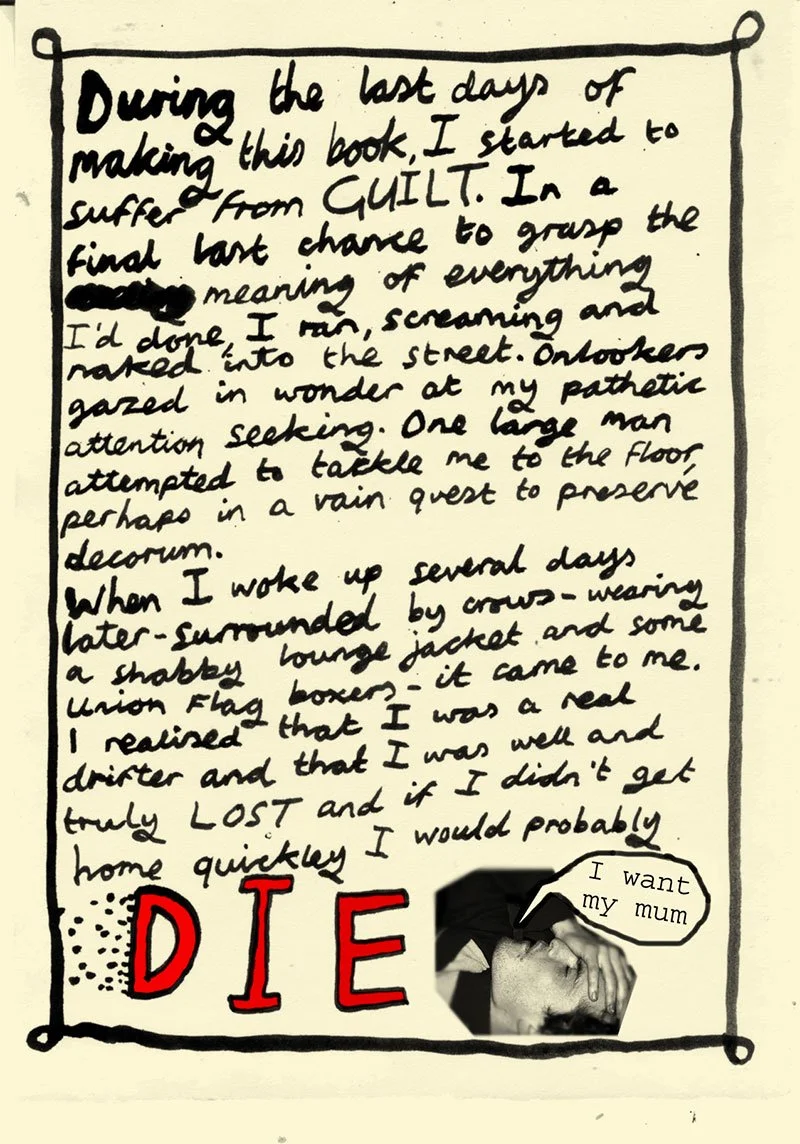 During the last days of
making this book, I started to
suffer from GUILT. In a
final last chance to grasp the
meaning of everything
I'd done, I ran, screaming and
naked into the street. Onlookers
gazed in wonder at my pathetic
attention seeking. One large man
attempted to tackle me to the floor,
perhaps in a vain quest to preserve
decorum.
When I woke up several days
later - surrounded by crows - wearing
a shabby lounge jacket and some
Union Flag boxers - it came to me.
I realised that I was a real
drifter and that I was well and
truly LOST and if I didn't get
home quickley I would probably
DIE
I want
my mum